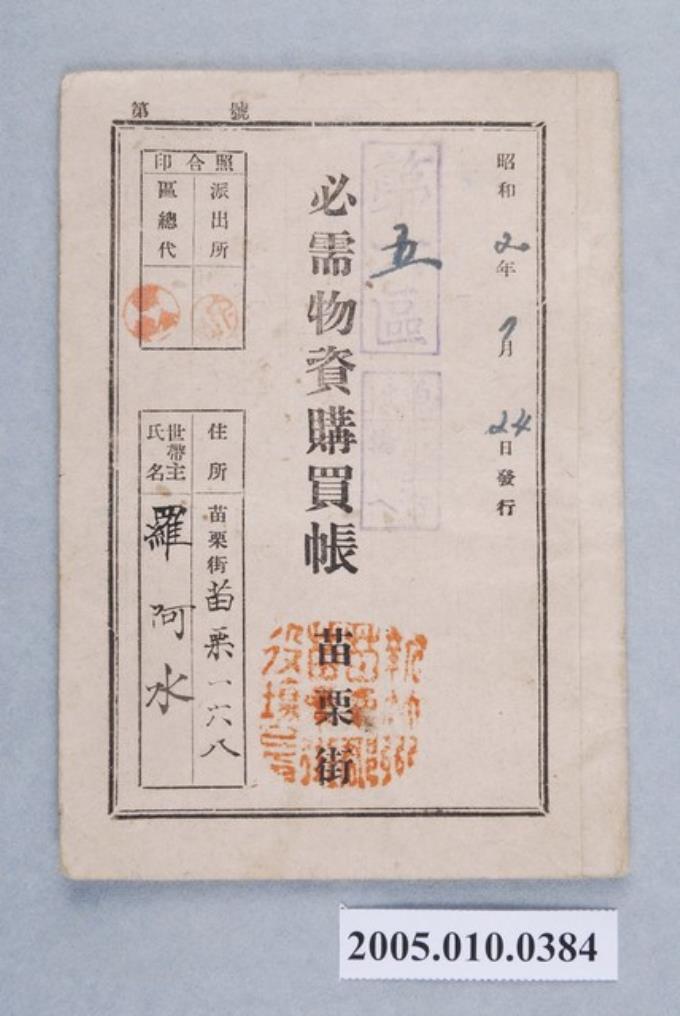 第 號
昭和 年 7月 24日發行
第五區
必需物資購買帳 苗栗街
照合印
派出所
區總代
住所 苗栗街苗栗一六八
世帶主氏名 羅阿水
2005.010.0384